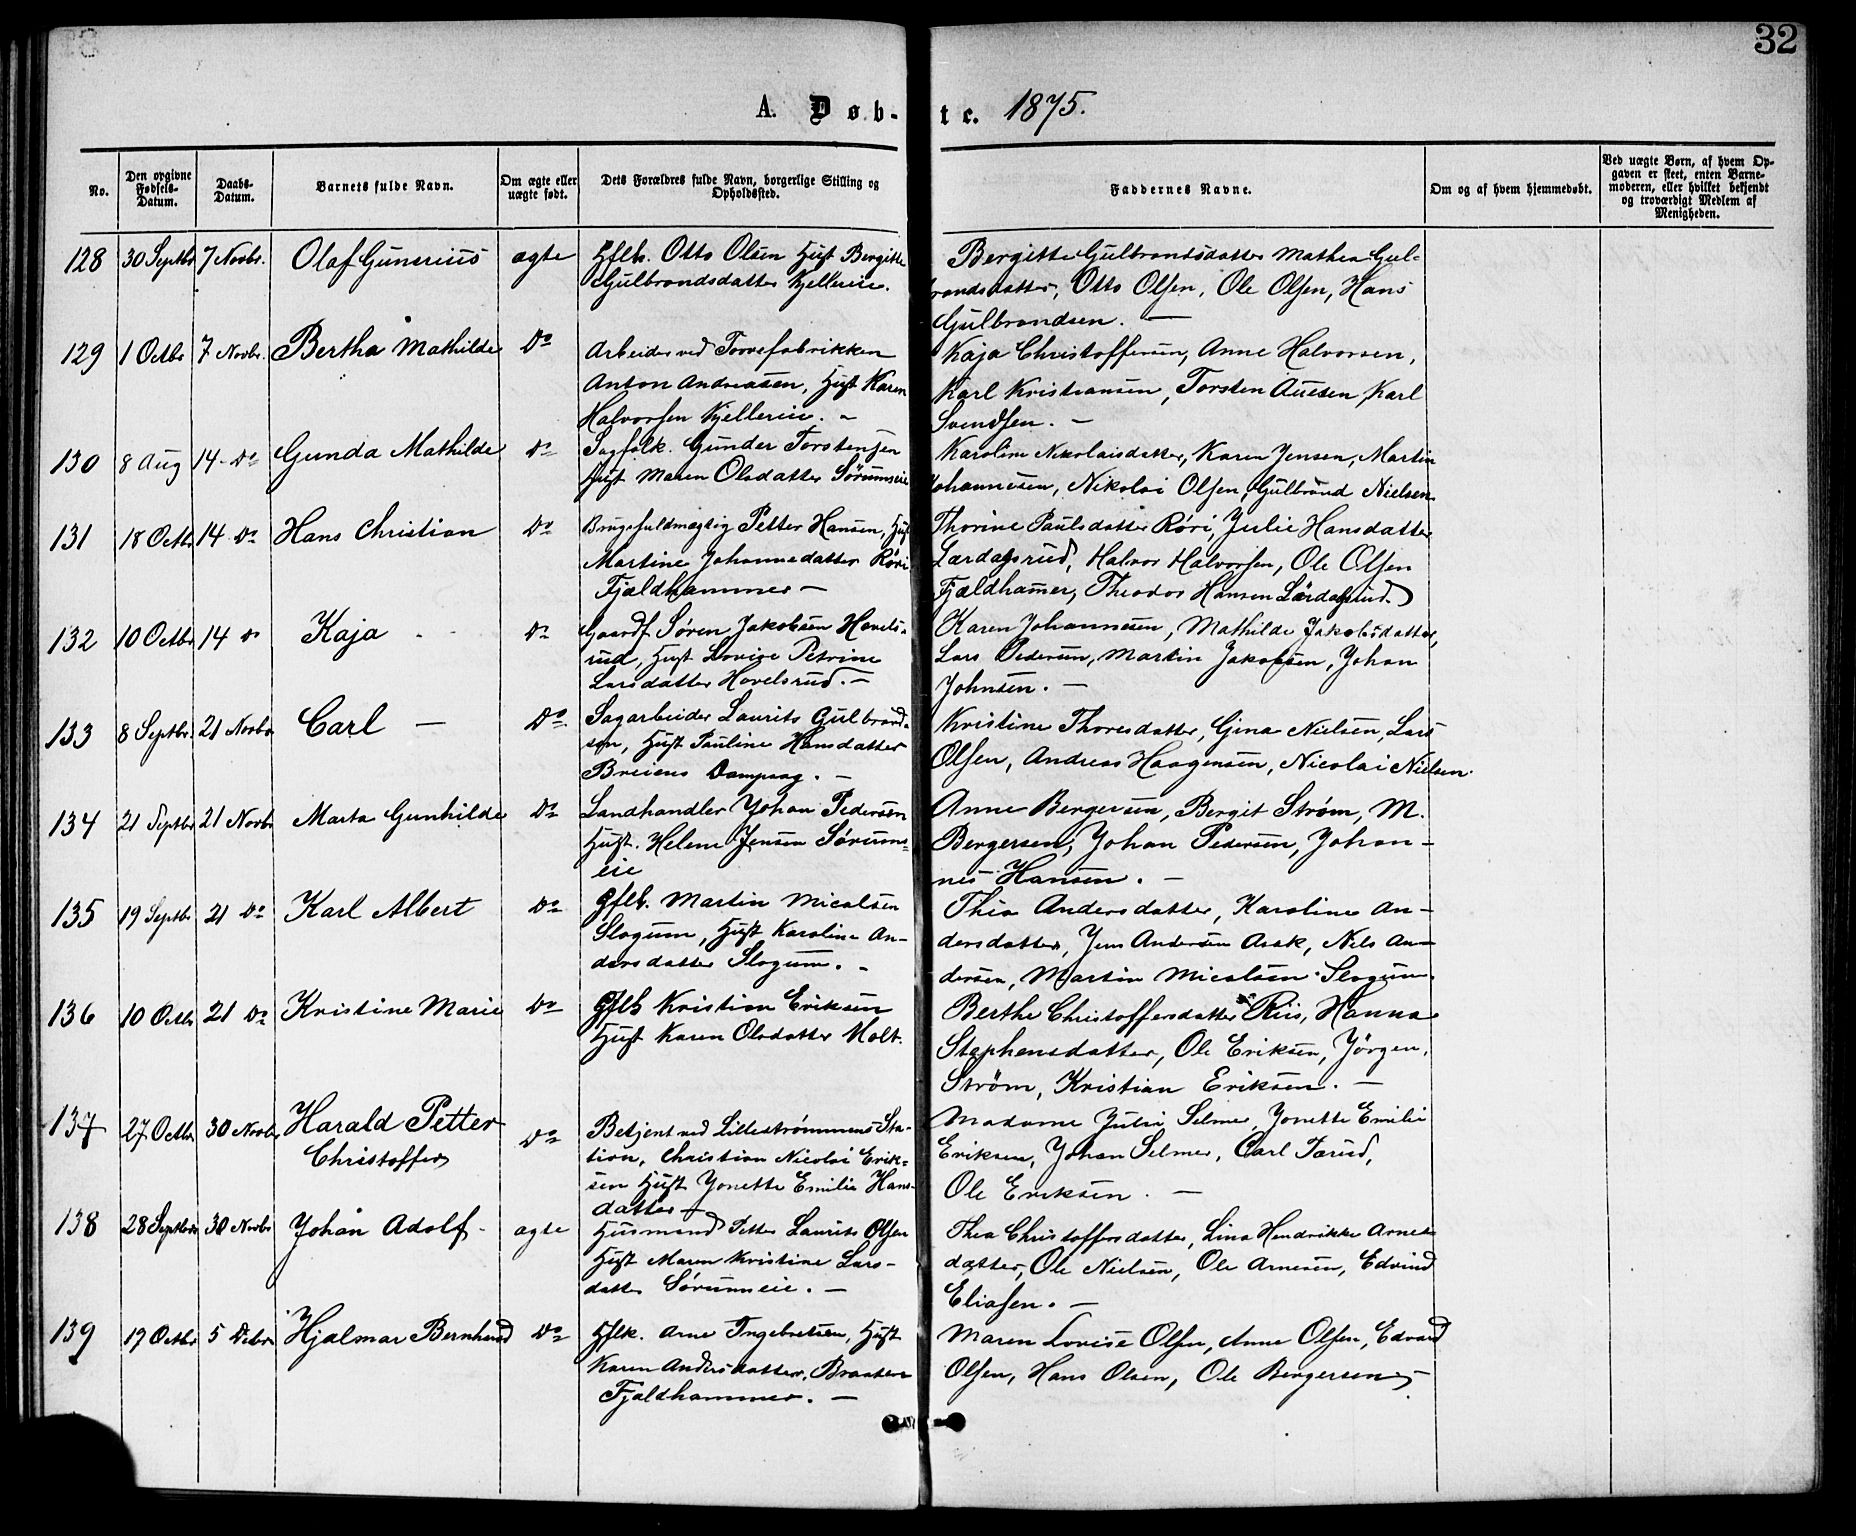 32
A. Døb-te. 1875.
No.
Den opgivne Fødsels-Datum.
Daabs-Datum.
Barnets fulde Navn.
Om ægte eller uægte født.
Dets Forældres fulde Navn, borgerlige Stilling og Opholdssted.
Faddernes Navne.
Om og af hvem hjemmedøbt.
Ved uægte Børn, af hvem Opgaven er skeet, enten Barnemoderen, eller hvilket bekjendt og troværdigt Medlem af Menigheden.
128 30 Septbr 7 Novbr. Olaf Gunerius ægte
Gflk. Otto Olsen Hust Bergitte
Gulbrandsdatter Kjellereie.
Bergitte Gulbrandsdatter Mathea Gul-
brandsdatter, Otto Olsen, Ole Olsen, Hans
Gulbrandsen. —
129 1 Octbr 7 Novbr. Bertha Mathilde Do
Arbeider ved Torvefabrikken
Anton Andreasen, Hust Karen
Halvorsen Kjellereie. -
Kaja Christoffersen, Anne Halvorsen,
Karl Kristiansen, Torsten Auesen, Karl
Svendsen. —
130 8 Aug 14 - Do Gunda Mathilde Do
Sagfolk. Gunder Torstensen
Hust Maren Olsdatter Sørumseie
Karoline Nikolaisdatter, Karen Jensen, Martin
Johannesen, Nikolai Olsen, Gulbrand Nielsen
131 18 Octbr 14 Do Hans Christian Do
Brugsfuldmægtig Petter Hansen, Hust
Martine Johannedatter Røri
Fjældhammer —
Thorine Paulsdatter Røri, Julie Hansdatter
Lærdalsrud, Halvor Halvorsen, Ole Olsen
Fjældhamer, Theodor Hansen Lärdalsrud
132 10 Octbr 14 Do Kaja - - Do
Gaardf Søren Jakobsen Hovels-
rud, Hust Lovise Petrine
Larsdatter Hovelsrud. —
Karen Johannesen, Mathilde Jakobsdatter,
Lars Pedersen, Martin Jakobsen, Johan
Johnsen. —
133 8 Septbr. 21 Novbr Carl — Do
Sagarbeider Laurits Gulbrand-
sen, Hust Pauline Hansdatter
Breiens Dampsag. —
Kristine Thoresdatter, Gina Nielsen, Lars
Olsen, Andreas Haagensen, Nicolai Nielsen.
134 21 Septbr 21 Novbr Marta Gunhilde Do
Landhandler Johan Pedersen
Hust. Helene Jensen Sørums-
eie
Anne Bergersen, Bergit Strøm, M.
Bergersen, Johan Pedersen, Johan-
nes Hansen. —
135 19 Septbr 21 Do Karl Albert Do
Gflk. Martin Micalsen
Slogum, Hust Karoline An-
dersdatter Slogum. -
Thea Andersdatter, Karoline An-
dersdatter, Jens Andersen Asak, Nils An-
dersen, Martin Micalsen Slogum
136 10 Octbr 21 Do Kristine Marie Do
Gflk Kristian Eriksen
Hust Karen Olsdatter Holt.
Berthe Christoffersdatter Riis, Hanna
Stephensdatter, Ole Eriksen, Jörgen
Ström, Kristian Eriksen. —
137 27 Octbr 30 Novbr Harald Petter
Christoffer Do
Betjent ved Lillestrømmens Sta-
tion, Christian Nicolai Erik-
sen Hust Jonette Emilie Hans-
datter —
Madame Julie Selmer, Jonette Emilie
Eriksen, Johan Selmer, Carl Tærud,
Ole Eriksen. —
138 28 Septbr 30 Novbr Johan Adolf - ægte
Husmand Petter Laurits Olsen
Hust Maren Kristine Lars-
datter Sørumseie. —
Thea Christoffersdatter, Lina Hendrikke Arnes-
datter, Ole Nielsen, Ole Arnesen, Edvind
Eliasen. —
139 19 Octbr 5 Debr Hjalmar Bernhard Do
Gflk. Arne Ingebretsen, Hust
Karen Andersdatter, Braaten
Fjældhammer. —
Maren Lovise Olsen, Anne Olsen, Edvard
Olsen, Hans Olsen, Ole Bergersen —